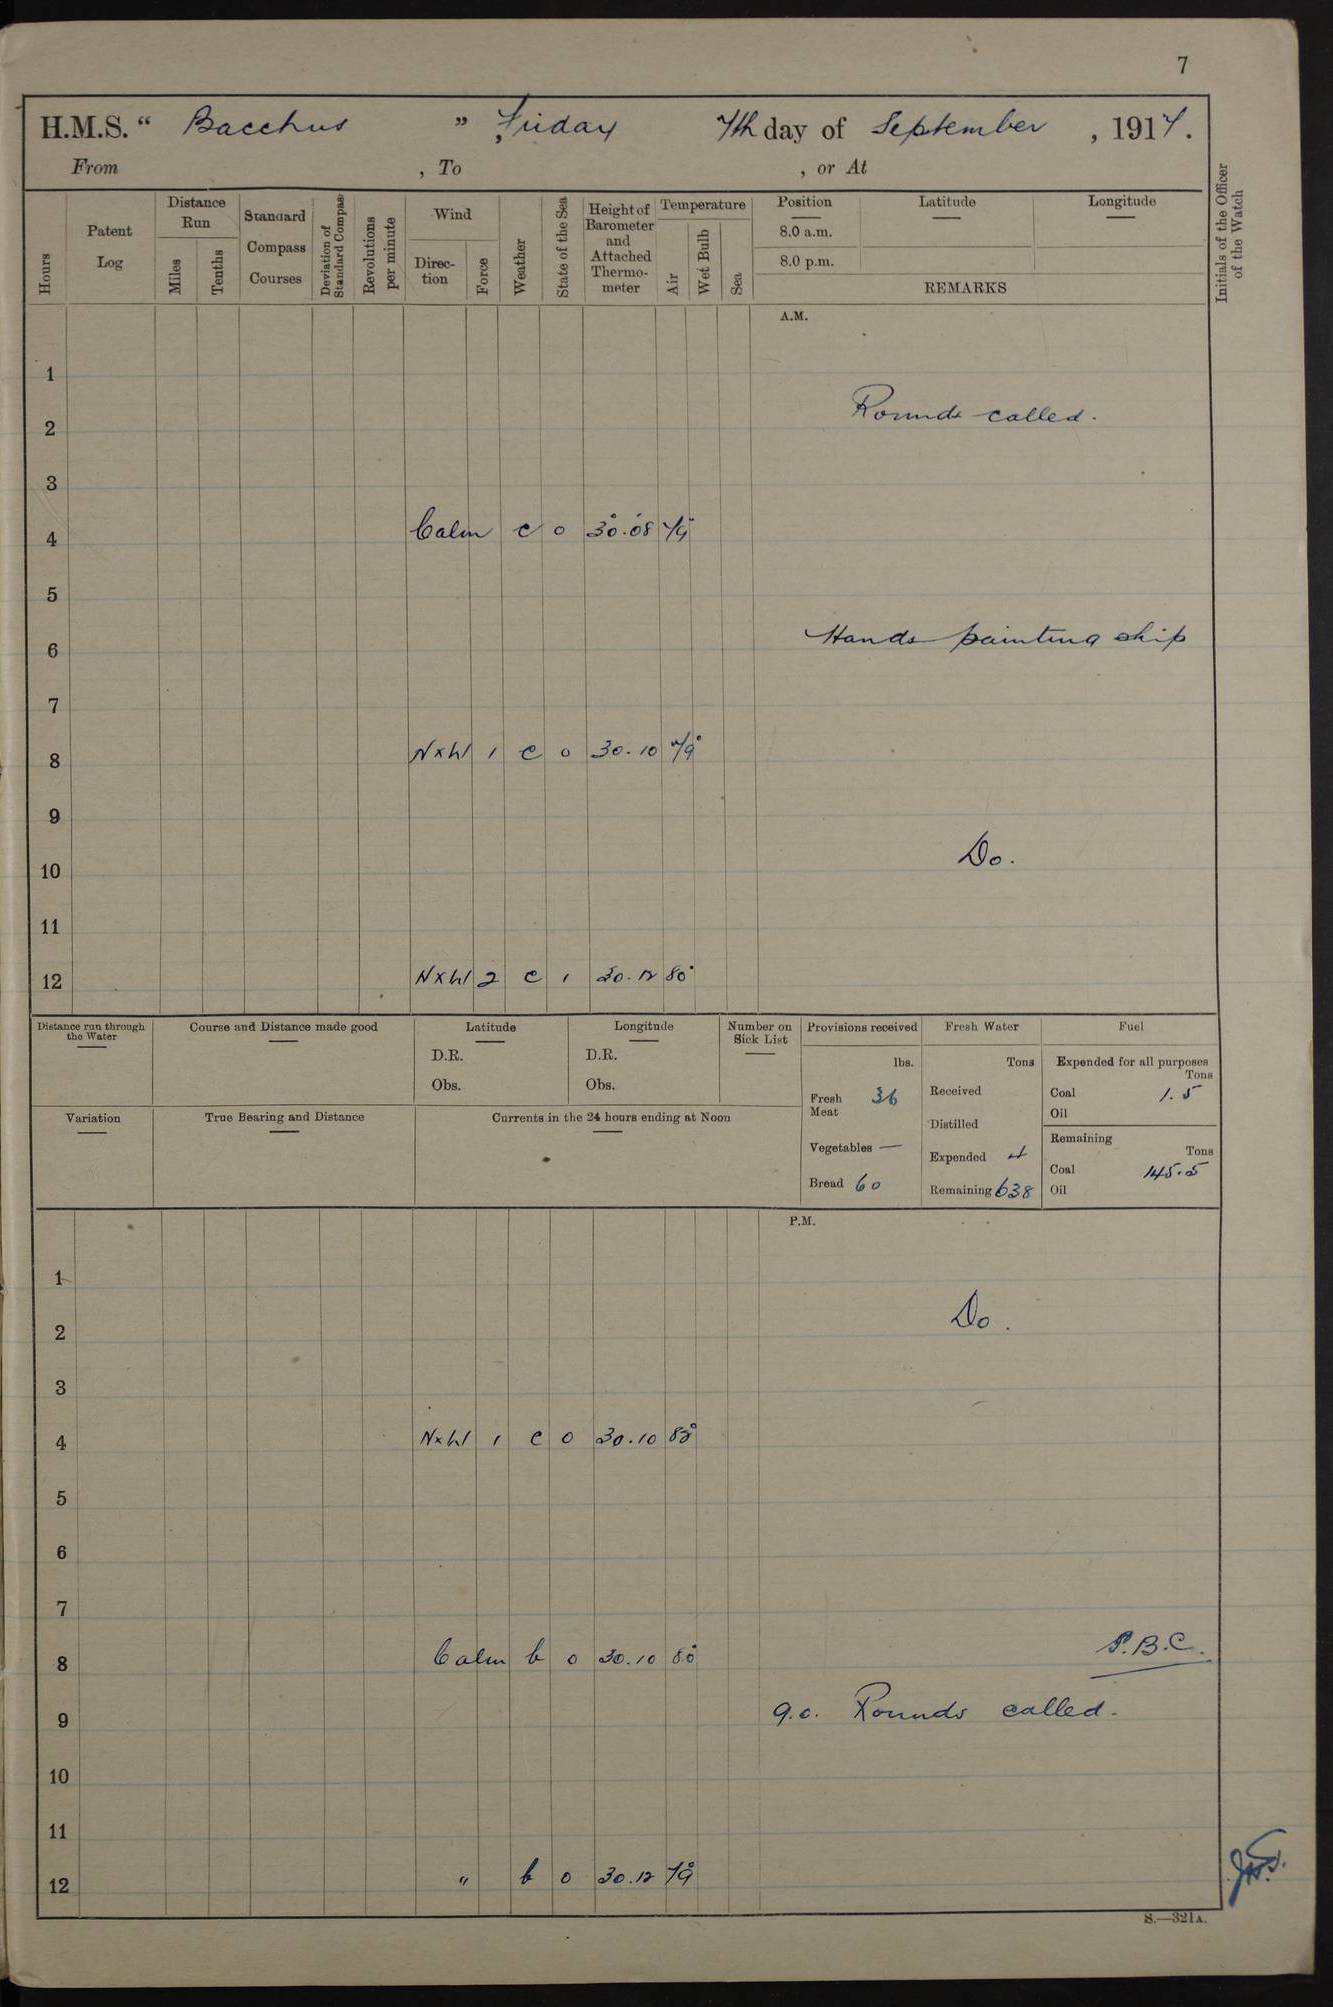 7
H.M.S. “ Bacchus ” , Friday 7th day of September , 1917.
From , To , or At
Hours
Patent Log
Distance Run
Miles
Tenths
Standard Compass Courses
Deviation of Standard Compass
Revolutions per minute
Wind
Direction
Force
Weather
State of the Sea
Height of Barometer and Attached Thermometer
Temperature
Air
Wet Bulb
Sea
Position Latitude Longitude
8.0 a.m.
8.0 p.m.
REMARKS
Initials of the Officer of the Watch
A.M.
1
Rounds called.
2
3
4 Calm c 0 30.08 79°
5
6 Hands painting ship
7
8 N x W 1 c 0 30.10 79°
9
Do.
10
11
12 N x W 2 c 1 30.12 80°
Distance run through the Water
Course and Distance made good
Latitude
D.R.
Obs.
Longitude
D.R.
Obs.
Number on Sick List
Provisions received
lbs.
Fresh Meat 36
Vegetables —
Bread 60
Fresh Water
Tons
Received
Distilled
Expended 4
Remaining 638
Fuel
Expended for all purposes
Tons
Coal 1.5
Oil
Remaining
Tons
Coal 145.5
Oil
Variation
True Bearing and Distance
Currents in the 24 hours ending at Noon
P.M.
1
Do.
2
3
4 N x W 1 c 0 30.10 83°
5
6
7
P.B.C.
8 Calm b 0 30.10 80°
9 9.0. Rounds called.
10
11
12 " b 0 30.12 79°
S.—321A.